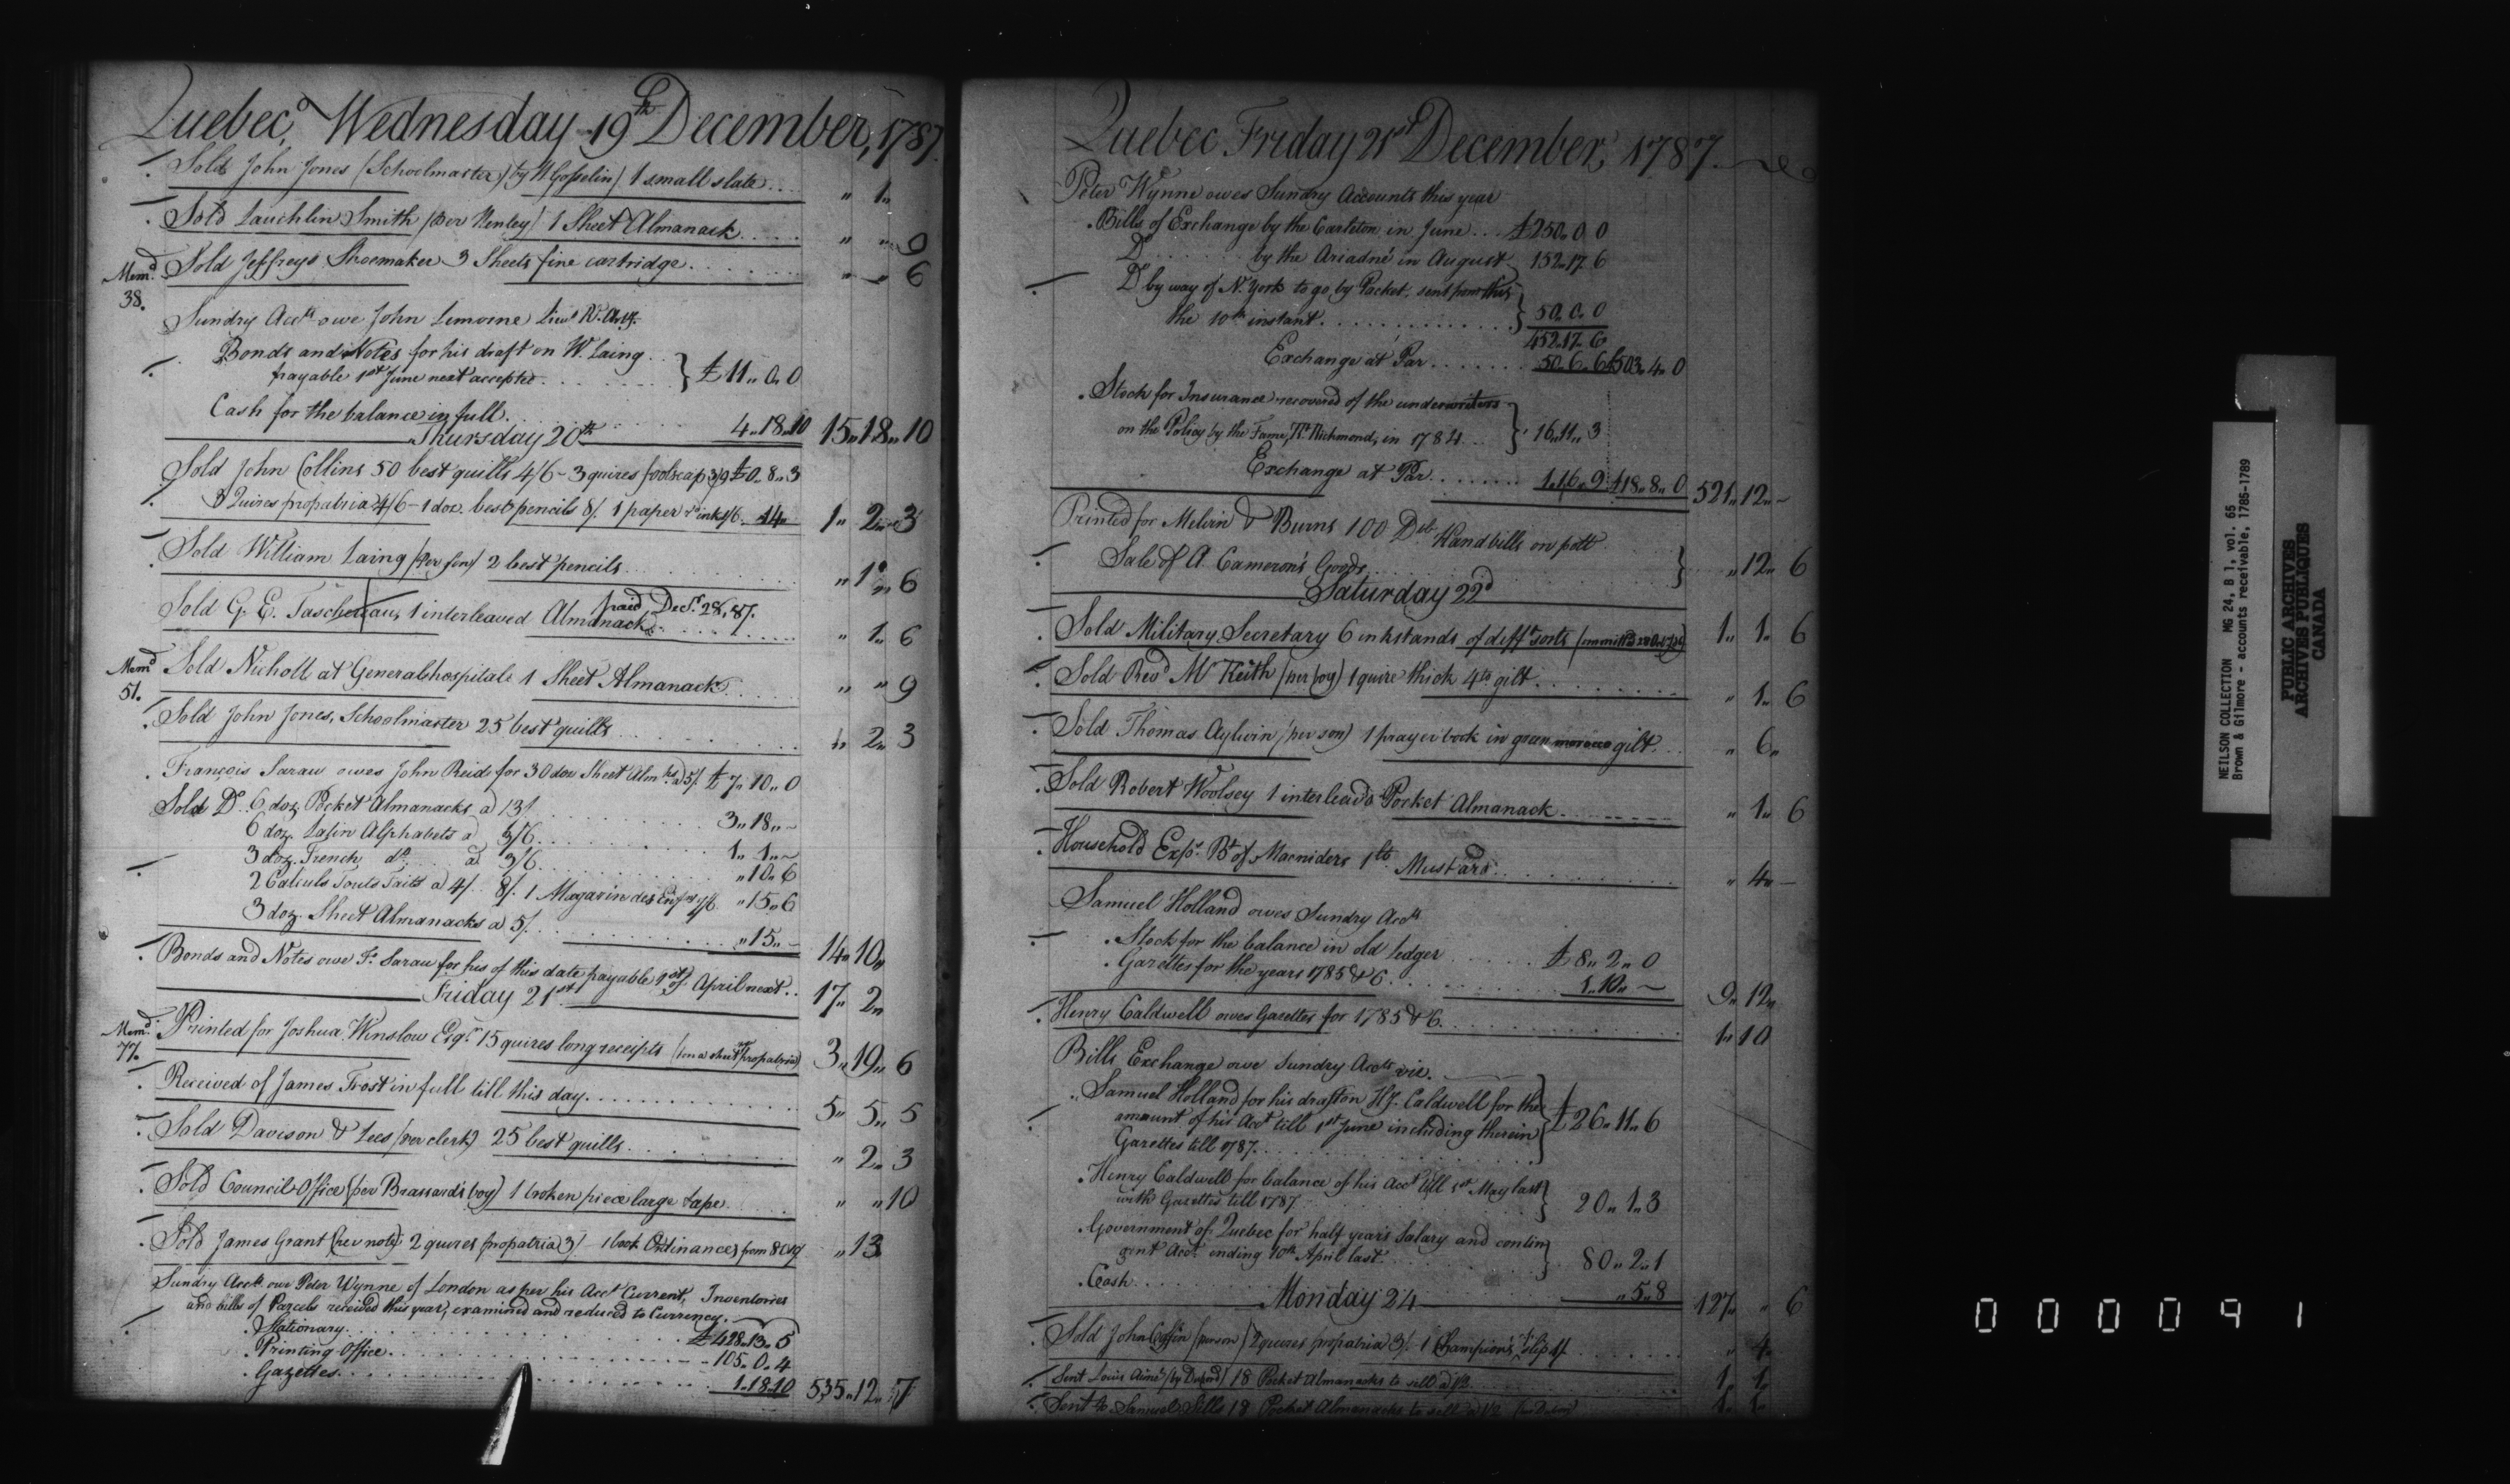 Quebec, Wednesday 19th December, 1787.
Sold John Jones (Schoolmaster) by H Gosselin / 1 small slate.... " 1 "
Sold Lauchlin Smith (per Henley) 1 Sheet Almanack..... " " 9
Memd. 38. Sold Jeffreys Shoemaker 3 Sheets fine cartridge......... " " 6
Sundry Accts. owe John Lemoine Lieut R. Arty.
Bonds and Notes for his draft on W. Laing..
payable 1st June next accepted......... } £11 " 0 " 0
Cash for the balance in full............ 4 " 18 " 10 15 " 18 " 10
Thursday 20th
Sold John Collins 50 best quills 4/6 - 3 quires foolscap 3/9 £0 " 8 " 3
3 Quires propatria 4/6 - 1 doz. best pencils 8/. 1 paper do ink 1/6. 14 " 1 " 2 " 3
Sold William Laing (per son) 2 best pencils........ " 1 " 6
paid, Decr. 28, 87.
Sold G. E. Taschereau, 1 interleaved Almanack........ " 1 " 6
Memd. 51. Sold Nicholl at General hospitals 1 Sheet Almanack..... " " 9
Sold John Jones, Schoolmaster 25 best quills......... " 2 " 3
François Sarau owes John Reid for 30 doz Sheet Almks. a 5/. £7 " 10 " 0
Sold Do. 6 doz. Pocket Almanacks a 13/........... 3 " 18 " -
6 doz. Latin Alphabets a 3/6........... 1 " 1 " -
3 doz. French do. a 3/6........... " 10 " 6
2 Calculs Touts Faits a 4/. 8/. 1 Magazin des 7/6. " 15 " 6
3 doz. Sheet Almanacks a 5/........... " 15 " - 14 " 10 "
Bonds and Notes owe F. Sarau for his of this date payable 1st of April next.. 17 " 2 "
Friday 21st
Memd. 77. Printed for Joshua Winslow Esqr. 15 quires long receipts (on a sheet propatria) 3 " 19 " 6
Received of James Frost in full till this day........... 5 " 5 " 5
Sold Davison & Lees (per clerk) 25 best quills......... " 2 " 3
Sold Council Office (per Brassard's boy) 1 broken piece large tape..... " " 10
Sold James Grant (per note) 2 quires propatria 3/. 1 book Ordinances " 13
Sundry Accts. owe Peter Wynne of London as per his Acct Current, Inventories
and bills of Parcels received this year, examined and reduced to Currency.
Stationary........... £428 " 13 " 5
Printing-Office........... 105 " 0 " 4
Gazettes........... 1 " 18 " 10 535 " 12 " 7
Quebec Friday 21st December, 1787.
Peter Wynne owes Sundry Accounts this year
Bills of Exchange by the Carleton in June... £250 " 0 " 0
Do......... by the Ariadne in August 152 " 17 " 6
Do by way of N. York to go by Packet, sent from this
the 10th instant.............. } 50 " 0 " 0
452 " 17 " 6
Exchange at Par........ 50 " 6 " 6 £503 " 4 " 0
Stock for Insurance recovered of the underwriters
on the Policy by the Fame, Richmond, in 1784... } 16 " 11 " 3
Exchange at Par........ 1 " 16 " 9 £18 " 8 " 0 521 " 12 " -
Printed for Melvin & Burns 100 Dble Handbills on pott
Sale of A. Cameron's Goods........ } " 12 " 6
Saturday 22d
Sold Military Secretary 6 inkstands of difft sorts 1 " 1 " 6
Sold Revd Mr Keith (per boy) 1 quire thick 4to gilt......... " 1 " 6
Sold Thomas Aylwin (per son) 1 prayer book in green morocco gilt... " 6 "
Sold Robert Woolsey 1 interleav'd Pocket Almanack......... " 1 " 6
Household Exps. Bt of Macniders 1 lb Mustard........... " 4 " -
Samuel Holland owes Sundry Accts
Stock for the balance in old ledger...... £8 " 2 " 0
Gazettes for the years 1785 & 6........... 1 " 10 " - 9 " 12 "
Henry Caldwell owes Gazettes for 1785 & 6........... 1 " 10
Bills Exchange owe Sundry Accts viz.
Samuel Holland for his draft on Hy. Caldwell for the
amount of his Acct till 1st June including therein
Gazettes till 1787........... } £26 " 11 " 6
Henry Caldwell for balance of his Acct till 1st May last
with Gazettes till 1787........ } 20 " 1 " 3
Government of Quebec for half year's Salary and contin
gent Acct ending 10th April last........ } 80 " 2 " 1
Cash........... " 5 " 8 127 " " 6
Monday 24
Sold John Coffin (per son) 2 quires propatria 3/. 1 Champion's slip 1/........ " 4 "
Sent Louis Aimé 18 Pocket Almanacks to sell a 1/2. 1 " 1 "
Sent to Samuel Sills 18 Pocket Almanacks to sell a 1/2 1 " 1 "
NEILSON COLLECTION MG 24, B 1, vol. 65
Brown & Gilmore - accounts receivable, 1785-1789
PUBLIC ARCHIVES
ARCHIVES PUBLIQUES
CANADA
000091